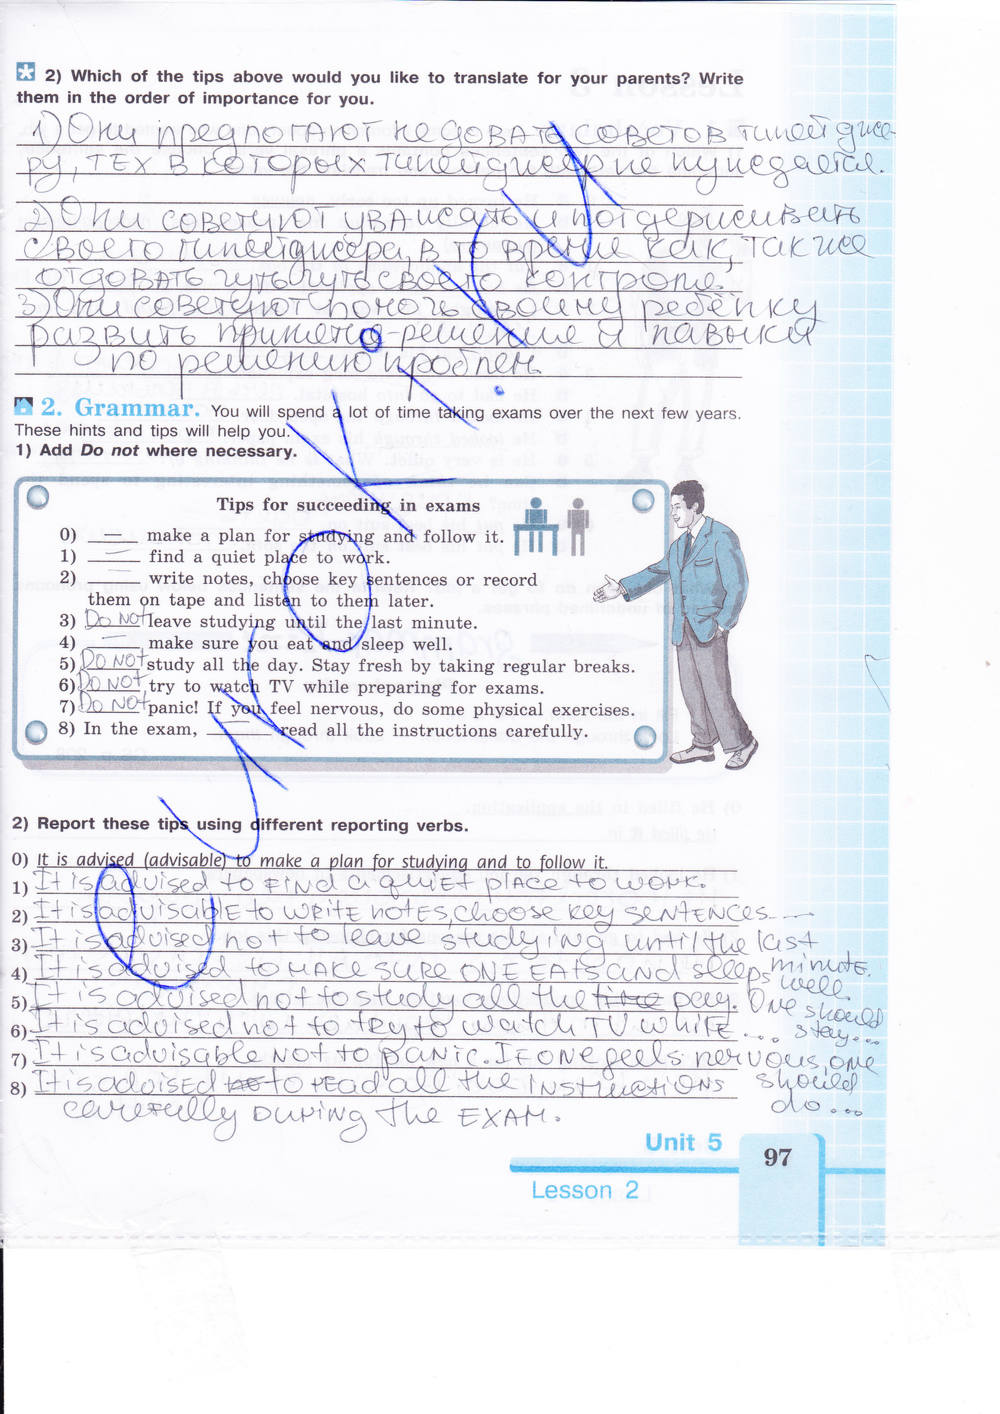 2) Which of the tips above would you like to translate for your parents? Write
them in the order of importance for you.
1) Они предлогают не довать советов тинейдже-
ру, тех в которых тинейджер не нуждается.
2) Они советуют уважать и потдерживать
своего тинейджера, в то время как, так же
отдовать чуть чуть своего контроля.
3) Они советуют помочь своиму ребёнку
развить принятие-решение и навыки
по решению проблем.
2. Grammar. You will spend a lot of time taking exams over the next few years.
These hints and tips will help you.
1) Add Do not where necessary.
Tips for succeeding in exams
0) — make a plan for studying and follow it.
1) — find a quiet place to work.
2) — write notes, choose key sentences or record
them on tape and listen to them later.
3) Do not leave studying until the last minute.
4) — make sure you eat and sleep well.
5) Do not study all the day. Stay fresh by taking regular breaks.
6) Do not try to watch TV while preparing for exams.
7) Do not panic! If you feel nervous, do some physical exercises.
8) In the exam, — read all the instructions carefully.
2) Report these tips using different reporting verbs.
0) It is advised (advisable) to make a plan for studying and to follow it.
1) It is advised to find a quiet place to work.
2) It is advisable to write notes, choose key sentences...
3) It is advised not to leave studying until the last
minute.
4) It is advised to make sure one eats and sleeps
well.
5) It is advised not to study all the time day. One should
stay...
6) It is advised not to try to watch TV while ...
7) It is advisable not to panic. If one feels nervous, one
should
do...
8) It is advised to read all the instructions
carefully during the exam.
Unit 5
97
Lesson 2
UROKI.KU